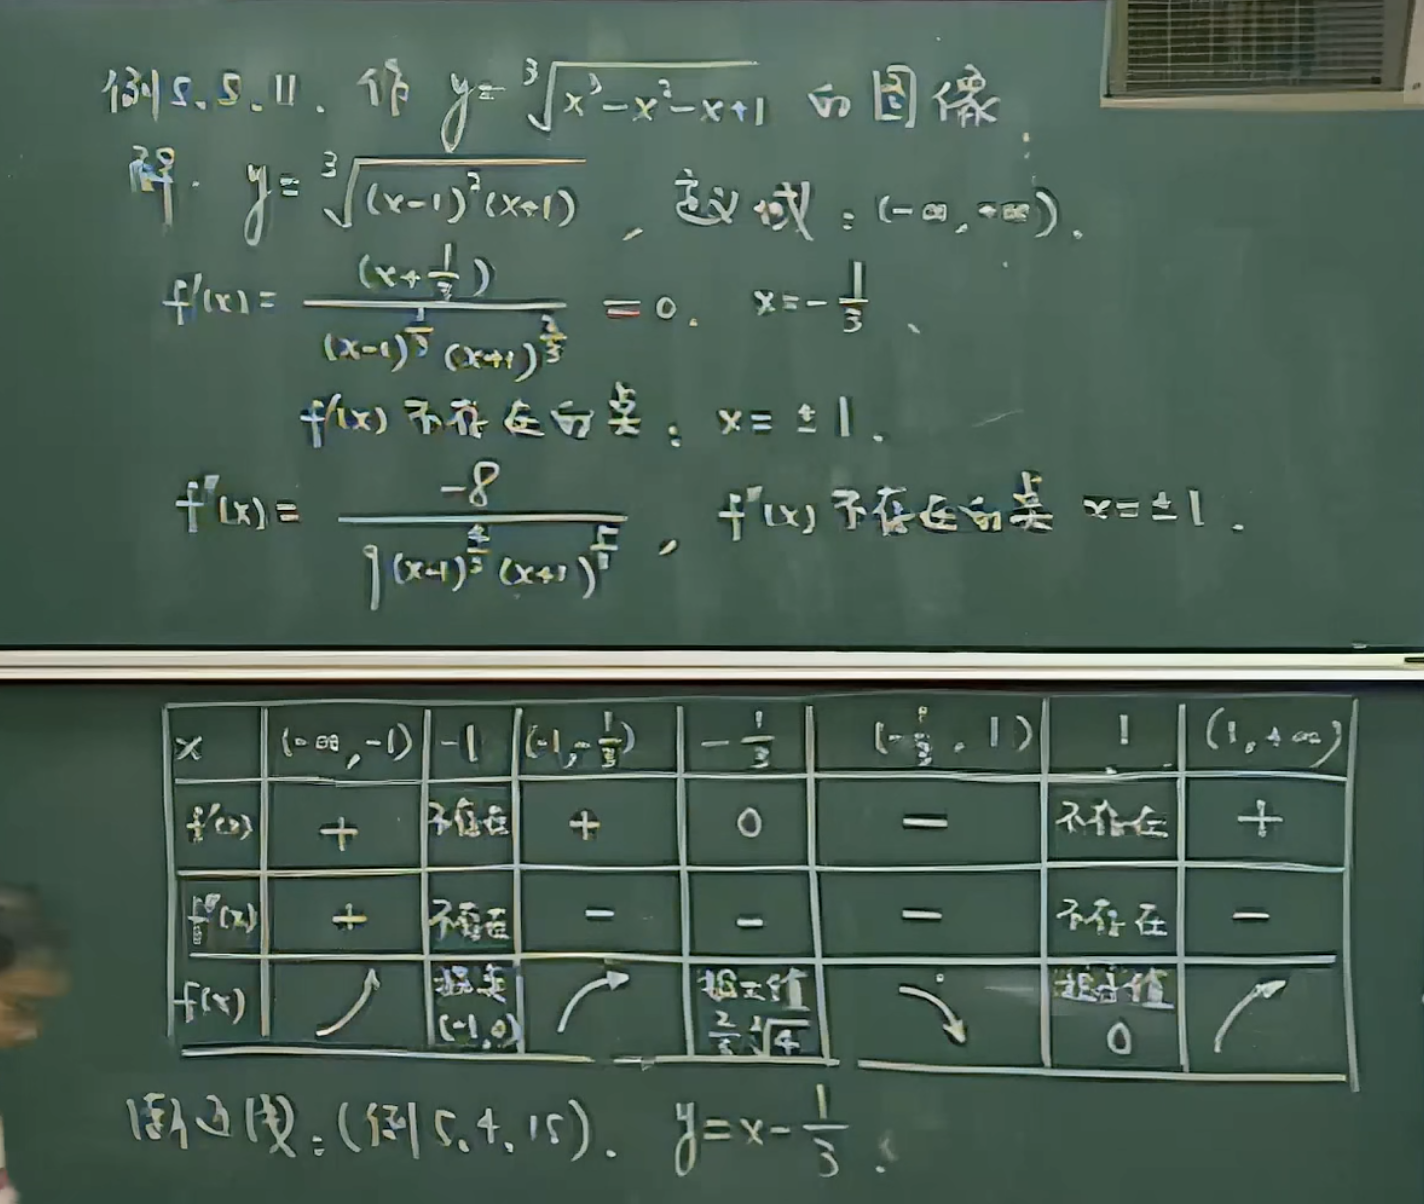 例5.5.11. 作 y=∛(x³-x²-x+1) 的图像.
解. y=∛((x-1)²(x+1)), 定义域: (-∞,+∞).
f'(x)= (x+1/3) / ((x-1)^(1/3) (x+1)^(2/3)) =0. x=-1/3、
f'(x) 不存在的点: x=±1.
f''(x)= -8 / (9(x-1)^(4/3) (x+1)^(5/3)), f''(x) 不存在的点 x=±1.
x (-∞,-1) -1 (-1,-1/3) -1/3 (-1/3,1) 1 (1,+∞)
f'(x) + 不存在 + 0 − 不存在 +
f''(x) + 不存在 − − − 不存在 −
f(x) ↗ 拐点 (-1,0) ↗ 极大值 2/3 ∛4 ↘ 极小值 0 ↗
渐近线: (例5.4.15). y=x-1/3.